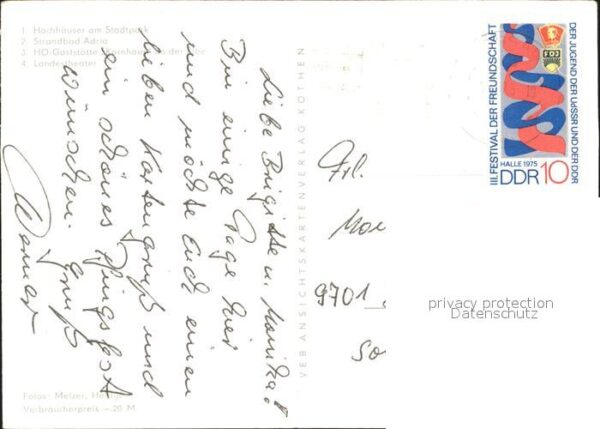 1 Hochhäuser am Stadtpark
2 Strandbad Adria
3 HO-Gaststätte Kornhaus an der Elbe
4 Landestheater
Liebe Brigitte u. Monika!
Bin einige Tage hier
und möchte Euch einen
lieben Kartengruß und
ein schönes Pfingstfest
wünschen. Gruß
Werner
Fotos: Melzer,
Verbraucherpreis -,20 M
VEB ANSICHTSKARTENVERLAG KÖTHEN
III. FESTIVAL DER FREUNDSCHAFT
DER JUGEND DER UdSSR UND DER DDR
FDJ
HALLE 1975
DDR 10
Frl.
Mo
9701
So
privacy protection
Datenschutz